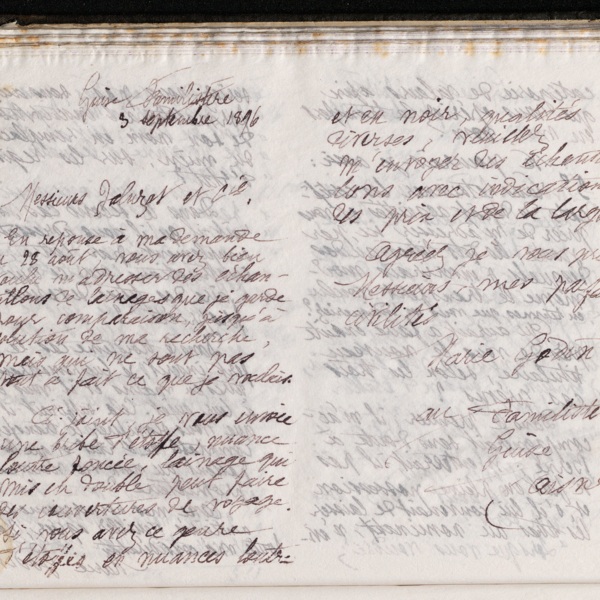 Guise Familistère
3 septembre 1896
Messieurs et Cie,
En réponse à ma demande
du 28 août vous avez bien
voulu m'adresser des échan-
tillons de lainages que je garde
pour comparaison, jusqu'à
solution de ma recherche,
mais qui ne sont pas
tout à fait ce que je voulais.
Ci joint, je vous envoie
une étoffe, nuance
loutre foncée, lainage qui
mis en double peut faire
des couvertures de voyage.
Si vous avez ce genre
d'étoffes en nuances loutre
et en noir, qualités
diverses, veuillez
m'envoyer des échantil-
lons avec indication
des prix et de la large
Agréez je vous pri
Messieurs, mes
civilités
Marie Godin
au Familistère
Guise
Aisne